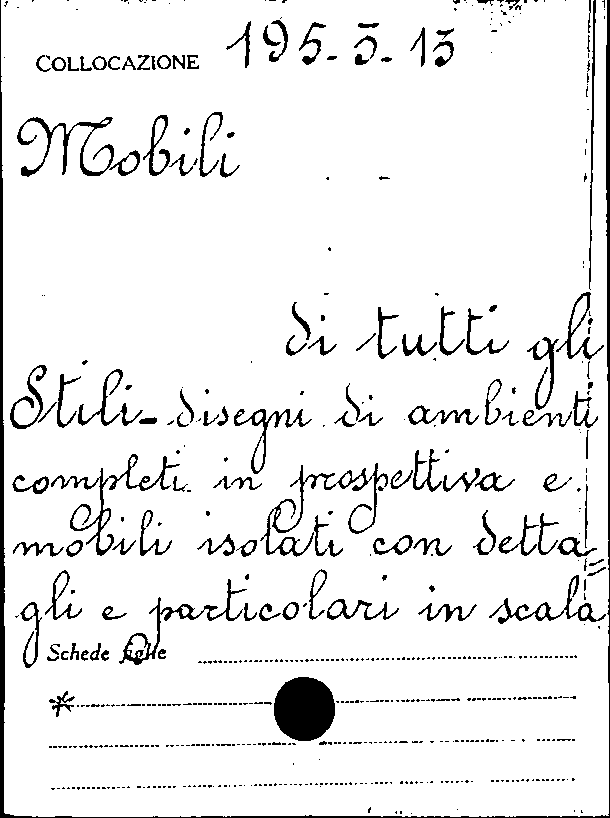 COLLOCAZIONE 195-5-15
Mobili
di tutti gli
Stili-disegni di ambienti
completi in prospettiva e
mobili isolati con detta=
gli e particolari in scala
Schede figlie
*